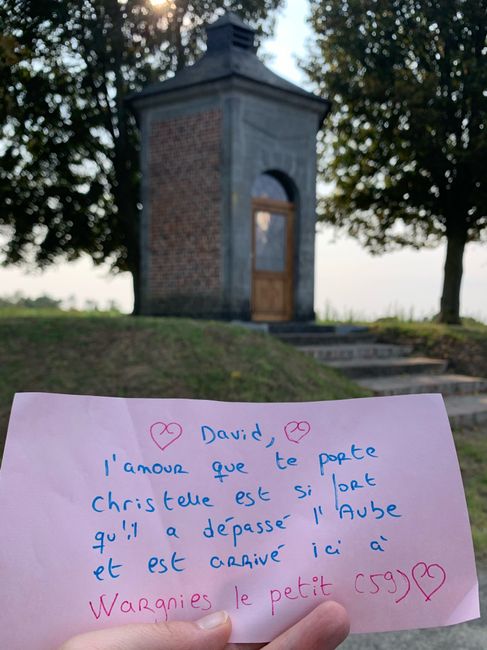 ♡ David, ♡
l'amour que te porte
Christelle est si fort
qu'il a dépassé l'Aube
et est arrivé ici à
Wargnies le petit (59) ♡